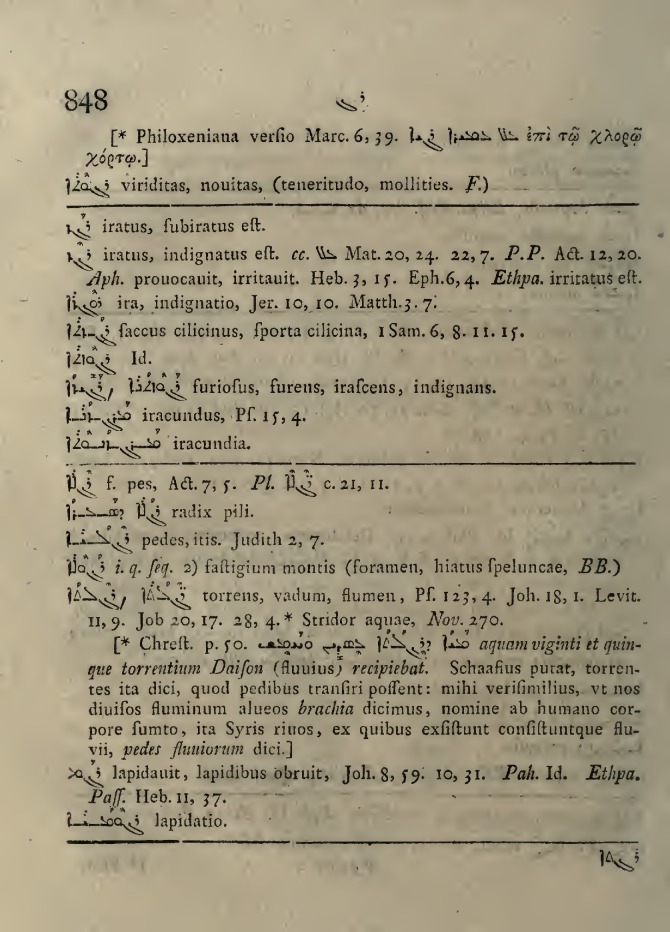 848 ܪܓ
[* Philoxeniana verſio Marc. 6, 39. ܥܠ ܪܓܐ ἐπὶ τῷ χλορῷ
χόρτῳ.]
ܪܓܘܬܐ viriditas, nouitas, (teneritudo, mollities. F.)
ܪܓܙ iratus, ſubiratus eſt.
ܪܓܙ iratus, indignatus eſt. cc. ܥܠ Mat. 20, 24. 22, 7. P.P. Act. 12, 20.
Aph. prouocauit, irritauit. Heb. 3, 15. Eph. 6, 4. Ethpa. irritatus eſt.
ܪܘܓܙܐ ira, indignatio, Jer. 10, 10. Matth. 3. 7.
ܪܓܙܬܐ ſaccus cilicinus, ſporta cilicina, 1 Sam. 6, 8. 11. 15.
ܪܓܘܙܬܐ Id.
ܪܓܝܙܐ, ܪܓܘܙܬܢܐ furioſus, furens, iraſcens, indignans.
ܡܪܓܙܢܐ iracundus, Pſ. 15, 4.
ܡܪܓܙܢܘܬܐ iracundia.
ܪܓܠܐ f. pes, Act. 7, 5. Pl. ܪ̈ܓܠܐ c. 21, 11.
ܪܓܠܐ ܕܣܥܪܐ radix pili.
ܪܓܠܝܐ pedes, itis. Judith 2, 7.
ܪܓܘܠܐ i. q. ſeq. 2) faſtigium montis (foramen, hiatus ſpeluncae, BB.)
ܪܓܠܬܐ, ܪܓܠܬܐ torrens, vadum, flumen, Pſ. 123, 4. Joh. 18, 1. Levit.
11, 9. Job 20, 17. 28, 4. * Stridor aquae, Nov. 270.
[* Chreſt. p. 50. ܡܝܐ ܕܪܓܠܬܐ aquam viginti et quin-
que torrentium Daiſon (fluuius) recipiebat. Schaafius putat, torren-
tes ita dici, quod pedibus tranſiri poſſent: mihi veriſimilius, vt nos
diuiſos fluminum alueos brachia dicimus, nomine ab humano cor-
pore ſumto, ita Syris riuos, ex quibus exſiſtunt conſiſtuntque flu-
vii, pedes fluuiorum dici.]
ܪܓܡ lapidauit, lapidibus obruit, Joh. 8, 59. 10, 31. Pah. Id. Ethpa.
Paſſ. Heb. 11, 37.
lapidatio.
ܪܓܬܐ